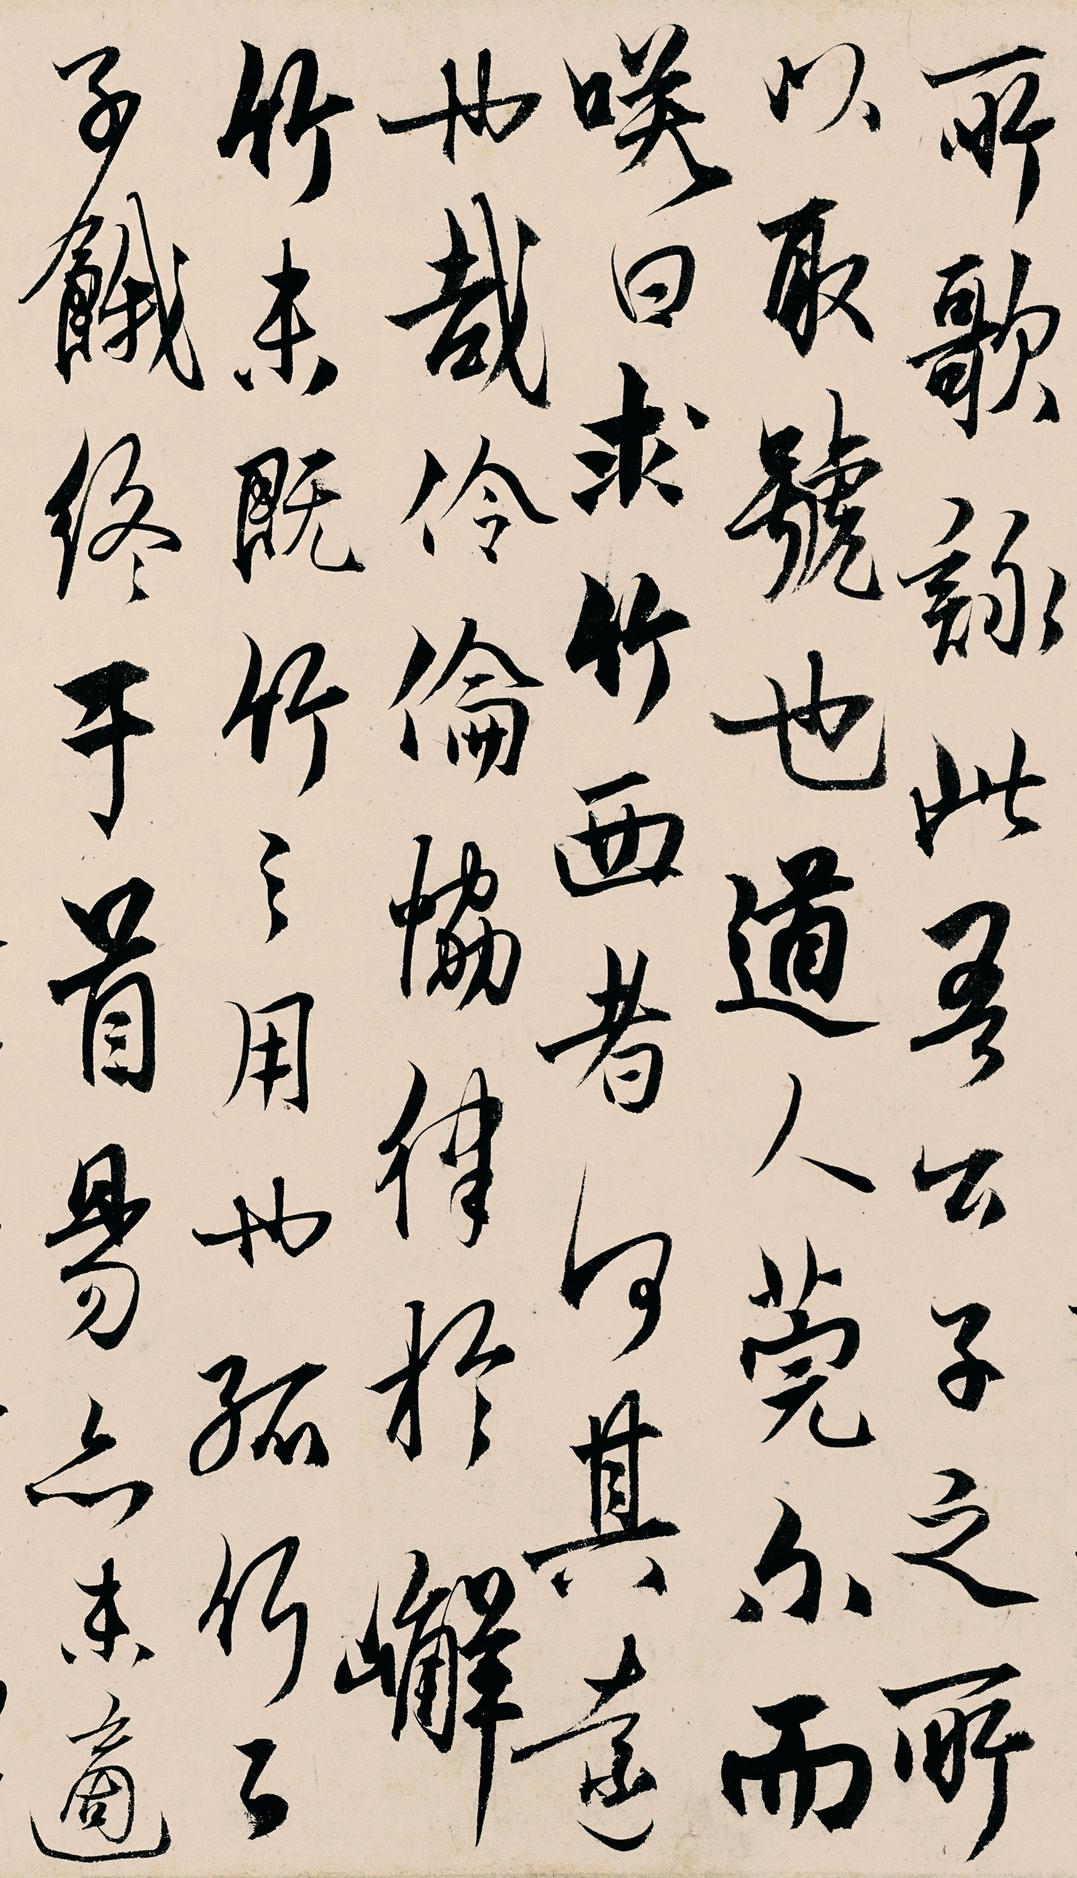 所歌詠此吾公子之所
以取號也道人莞尔而
咲曰求竹西者何其遠
也哉伶倫恊律於嶰
竹未既竹之用也孤竹之
子餓終于首昜亦未適